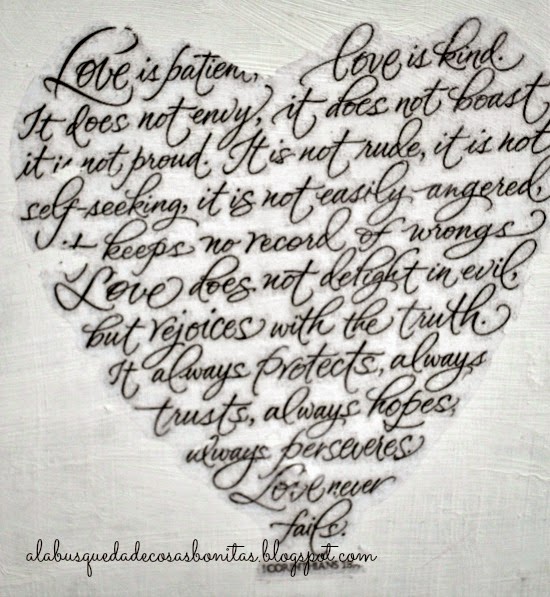 Love is patient, love is kind.
It does not envy, it does not boast,
it is not proud. It is not rude, it is not
self-seeking, it is not easily angered,
it keeps no record of wrongs
Love does not delight in evil,
but rejoices with the truth.
It always protects, always
trusts, always hopes,
always perseveres
Love never
fails.
alabusquedadecosasbonitas.blogspot.com
1 CORINTHIANS